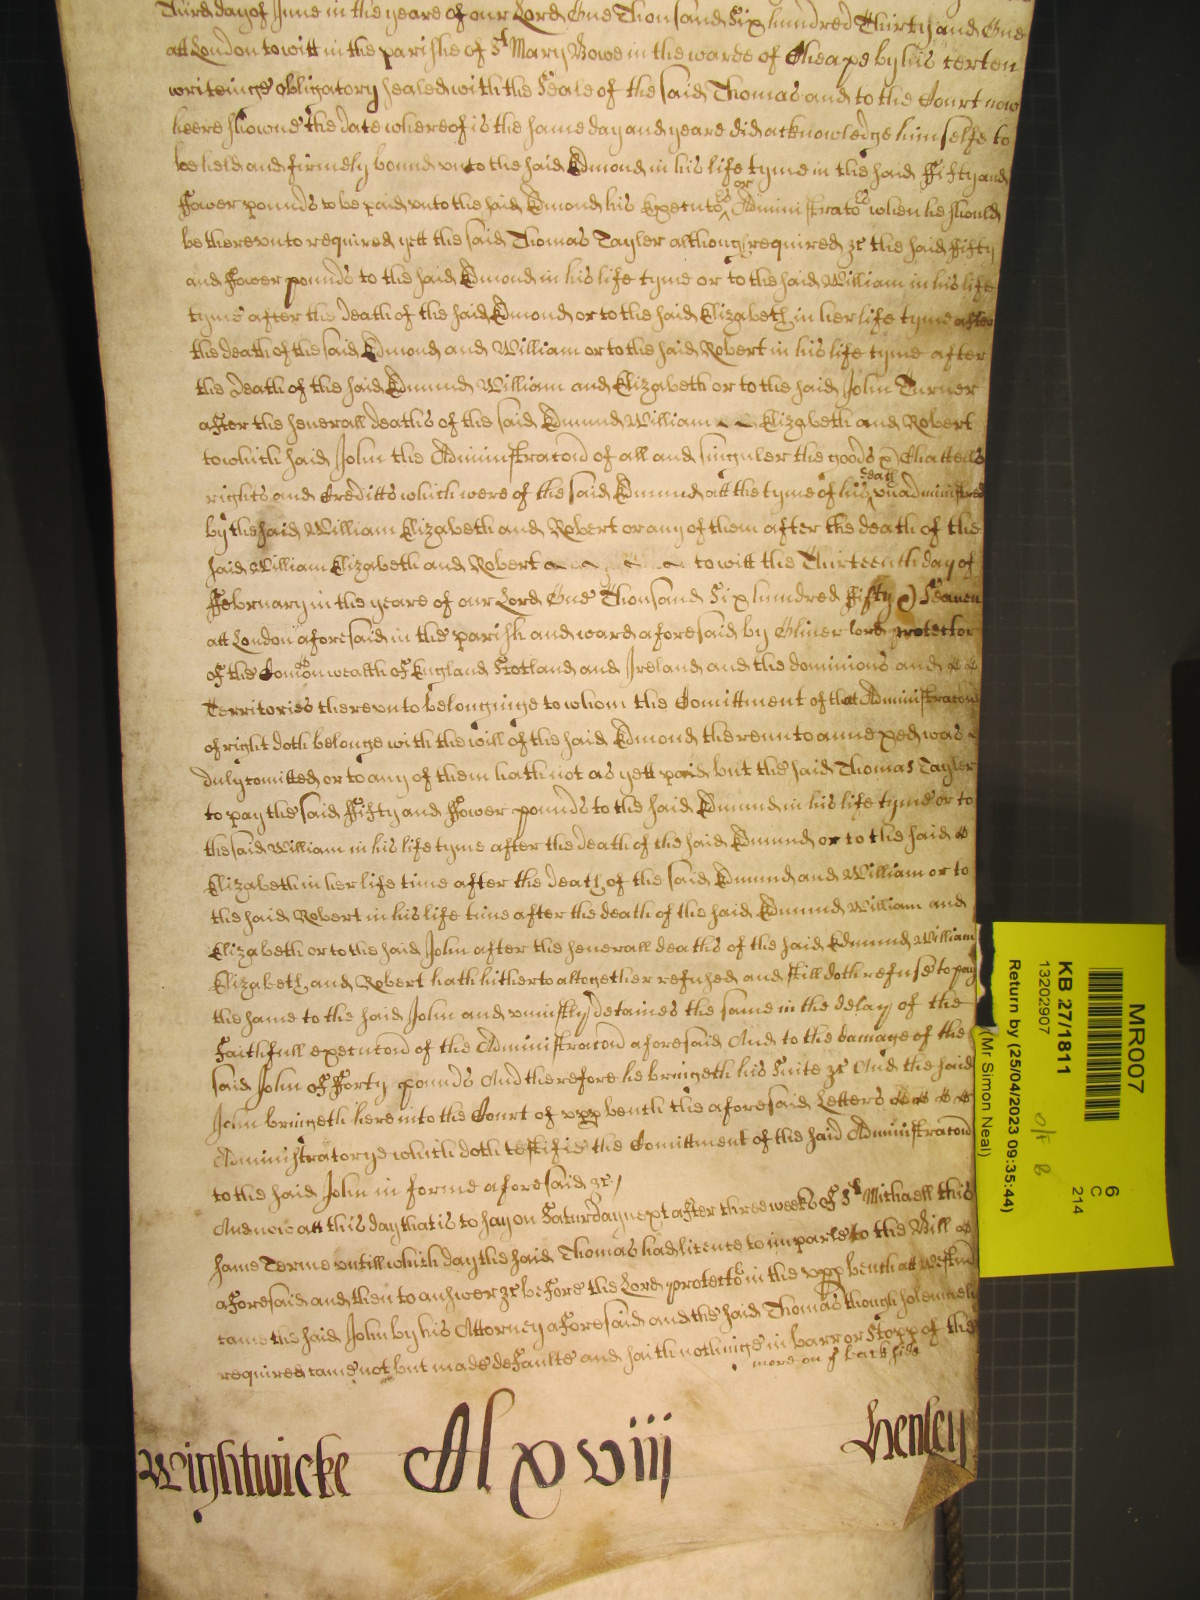 Third day of June in the yeare of our Lord One Thousand Six hundred Thirty and One
att London to witt in the parishe of St Mary Bowe in the warde of Cheape by his certen
writeinge obligatory sealed with the Seale of the said Thomas and to the Court now
heere showne the date whereof is the same day and yeare did acknowledge himselfe to
be held and firmely bound unto the said Edmond in his life tyme in the said Fifty and
Fower pounds to be paid unto the said Edmond his Executors or Administrators when he should
be thereunto required yett the said Thomas Tayler although required &c the said Fifty
and Fower pounds to the said Edmond in his life tyme or to the said William in his life
tyme after the death of the said Edmond or to the said Elizabeth in her life tyme after
the death of the said Edmond and William or to the said Robert in his life tyme after
the death of the said Edmund William and Elizabeth or to the said John Turner
after the severall deaths of the said Edmund William Elizabeth and Robert
to which said John the Administracon of all and singuler the goods & Chattells
rights and Creditts which were of the said Edmund att the tyme of his death unadministred
by the said William Elizabeth and Robert or any of them after the death of the
said William Elizabeth and Robert to witt the Thirteenth day of
February in the yeare of our Lord One Thousand Six hundred Fifty & Seaven
att London aforesaid in the parish and ward aforesaid by Oliver lord protector
of the Comonwealth of England Scotland and Ireland and the dominions and
Territories thereunto belonginge to whom the Comittment of that Administracon
of right doth belonge with the will of the said Edmond thereunto annexed was
duly comitted or to any of them hath not as yett paid but the said Thomas Tayler
to pay the said Fifty and Fower pounds to the said Edmund in his life tyme or to
the said William in his life tyme after the death of the said Edmund or to the said
Elizabeth in her life time after the death of the said Edmund and William or to
the said Robert in his life time after the death of the said Edmund William and
Elizabeth or to the said John after the severall deaths of the said Edmund William
Elizabeth and Robert hath hitherto altogether refused and still doth refuse to pay
the same to the said John and uniustly detaines the same in the delay of the
Faithfull execucon of the Administracon aforesaid And to the damage of the
said John of Forty pounds And therefore he bringeth his Suite &c And the said
John bringeth here into the Court of upp bench the aforesaid Letters
Administratorye which doth testifie the Comittment of the said Administracon
to the said John in forme aforesaid &c
And now att this day that is to say on Saturday next after three weekes of St Michaell this
same Terme untill which day the said Thomas had licence to imparle to the Bill
aforesaid and then to answer &c before the Lord protector in the upp bench att Westm
came the said John by his Attorney aforesaid and the said Thomas though solemnely
required came not but made defaulte and saith nothinge in barr or Stopp of the
more on ye back side
Wightwicke Al xviii Henley
MR007
6
C
214
KB 27/1811
13202907
o/r B
Return by (25/04/2023 09:35:44)
(Mr Simon Neal)